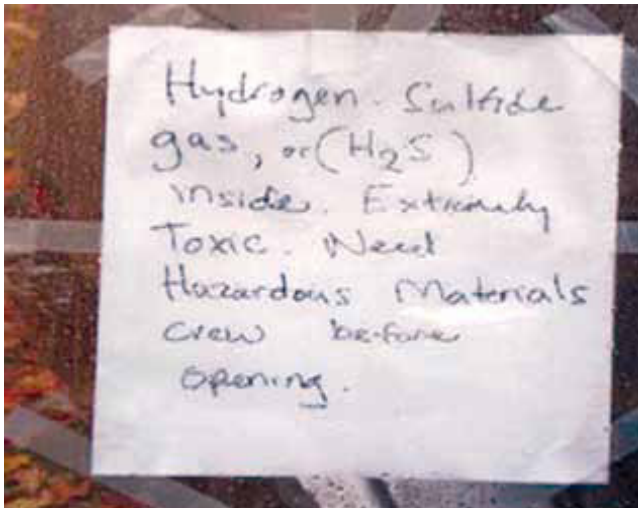 Hydrogen. Sulfide
gas, or (H2S)
inside. Extremely
Toxic. Need
Hazardous Materials
crew before
opening.